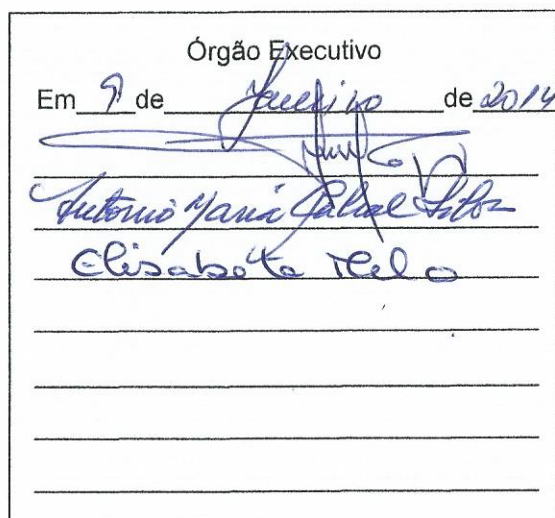 Órgão Executivo
Em 9 de Janeiro de 2014
António Maria Cabral Silva
Elisabete Melo